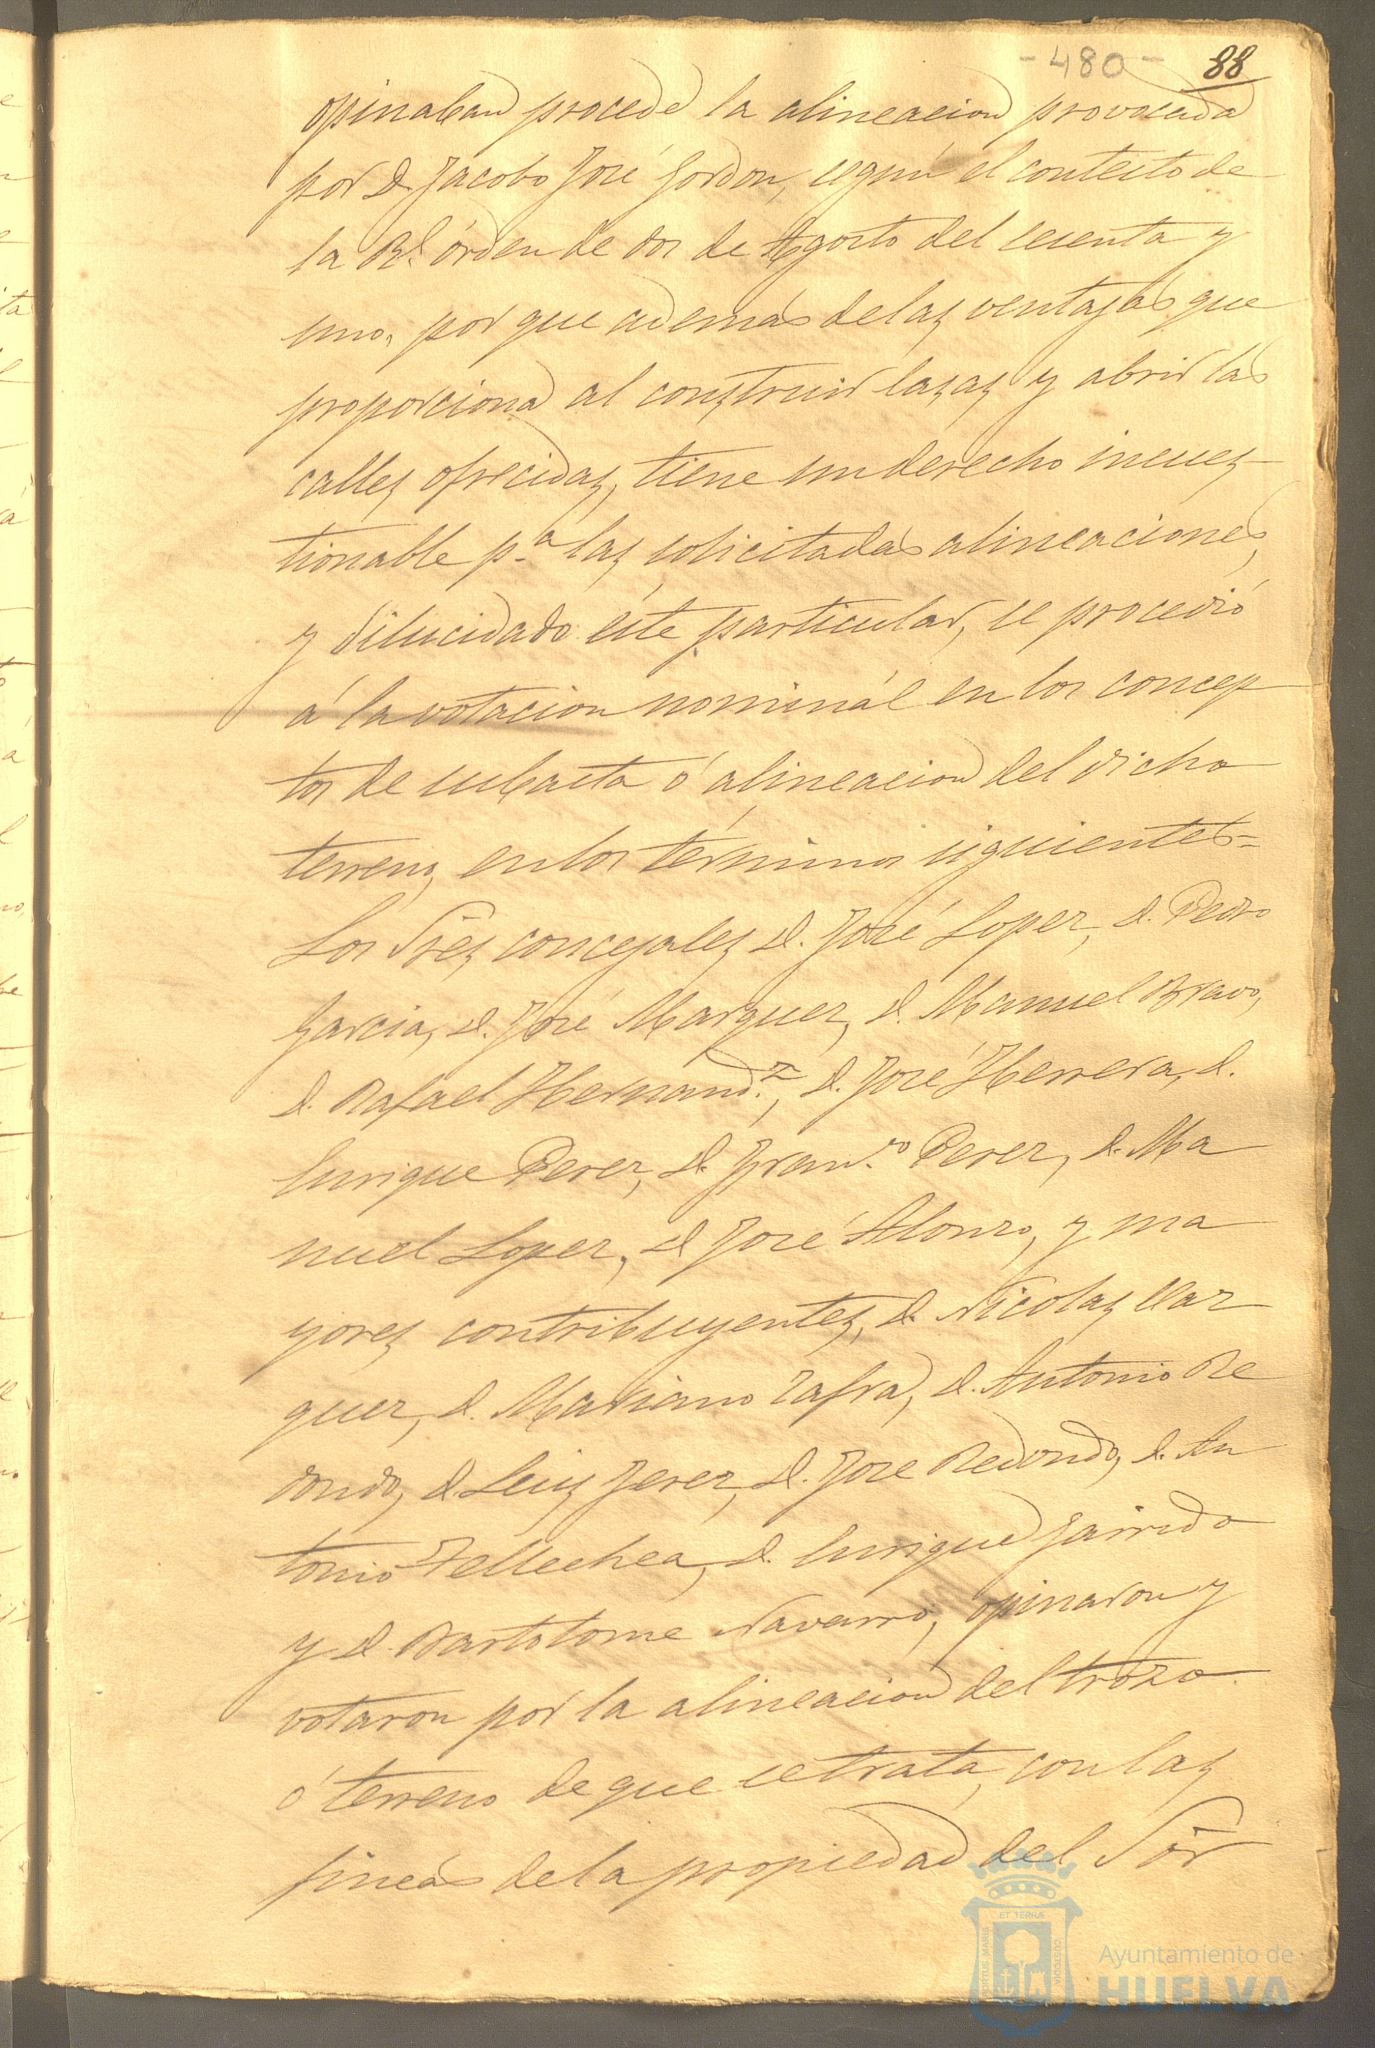 -480- 88
opinaban procede la alineacion provocada
por D. Jacobo José Jordon, según el contecto de
la Rl. órden de dos de Agosto del secenta y
uno, por que ademas de las ventajas que
proporciona al construir casas y abrir las
calles ofrecidas, tiene un derecho incues-
tionable p.a las solicitadas alineaciones,
y dilucidado éste particular, se procedió
á la votacion nominál en los concep
tos de subasta ó alineacion del dicho
terreno, en los términos siguientes=
Los Sres concejales D. José Lopez, D. Pedro
Garcia, D. José Marquez, D. Manuel Bravo,
D. Rafael Hernand.z, D. José Herrera, D.
Enrique Perez, D. Fran.co Perez, D. Ma
nuel Lopez, D. José Alonzo, y ma
yores contribuyentes, D. Nicolas Var
quez, D. Mariano Zafra, D. Antonio Re
dondo, D. Luis Jerez, D. José Redondo, D. An
tonio Tellechea, D. Enrique Garrido
y D. Bartolome Navarro, opinaron y
votaron por la alineacion del trozo
ó terreno de que se trata, con las
fincas de la propiedad del Sor
Ayuntamiento de
HUELVA